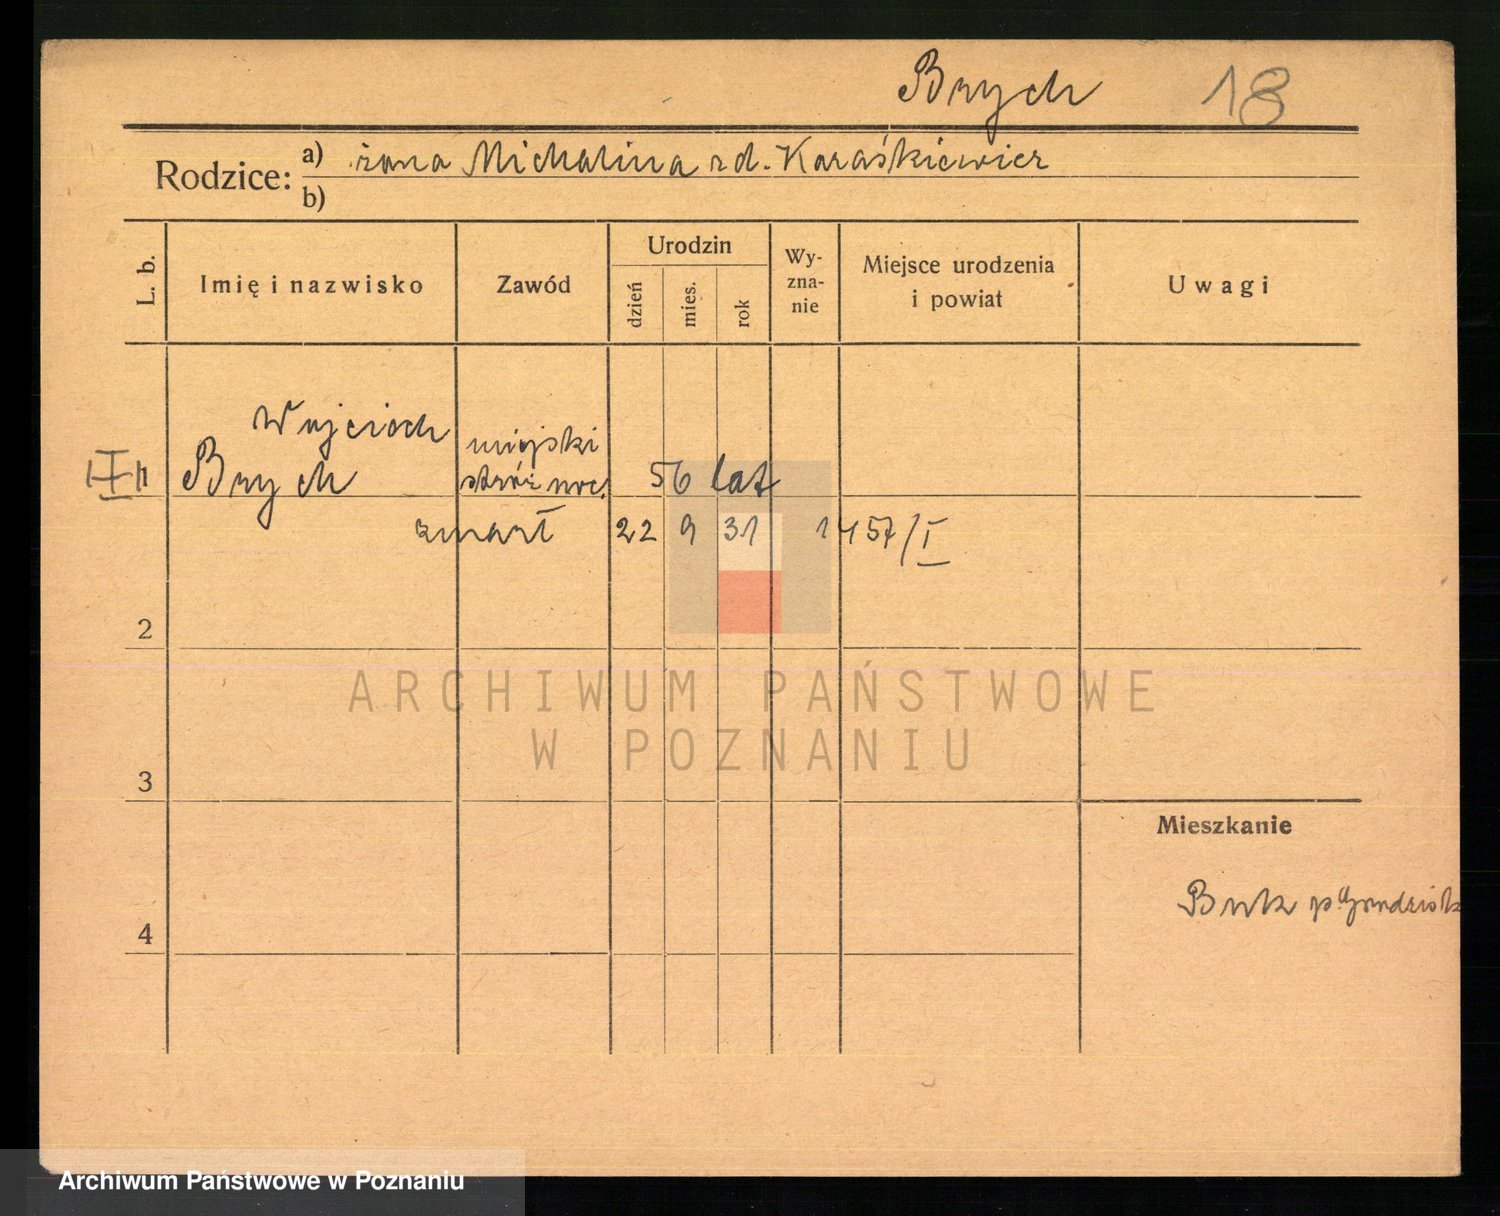 Brych 18
Rodzice: a) żona Michalina zd. Karaśkiewicz
b)
L. b.
Imię i nazwisko
Zawód
Urodzin
dzień
mies.
rok
Wy-
zna-
nie
Miejsce urodzenia
i powiat
Uwagi
Wojciech
Brych
miejski
stróż noc.
56 lat
zmarł 22 9 31 1457/I
2
3
4
Mieszkanie
Buk p. Grodzisk
ARCHIWUM PAŃSTWOWE
W POZNANIU
Archiwum Państwowe w Poznaniu